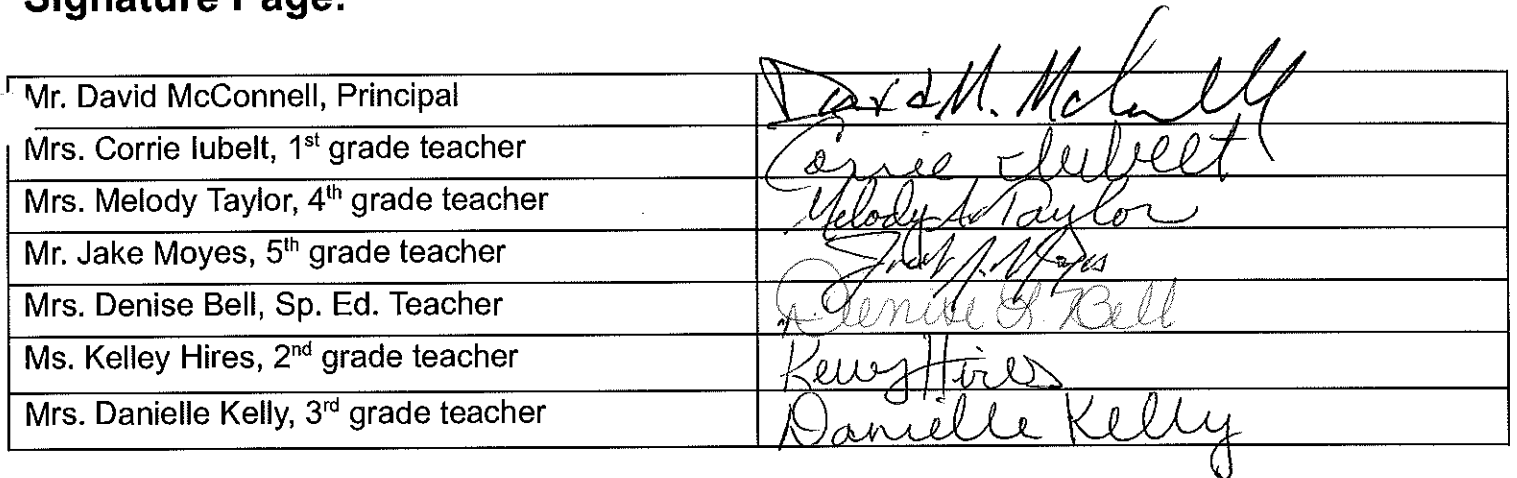 Signature Page:
Mr. David McConnell, Principal David M. McConnell
Mrs. Corrie Iubelt, 1st grade teacher Corrie Iubelt
Mrs. Melody Taylor, 4th grade teacher Melody A. Taylor
Mr. Jake Moyes, 5th grade teacher
Mrs. Denise Bell, Sp. Ed. Teacher Denise L. Bell
Ms. Kelley Hires, 2nd grade teacher Kelley Hires
Mrs. Danielle Kelly, 3rd grade teacher Danielle Kelly